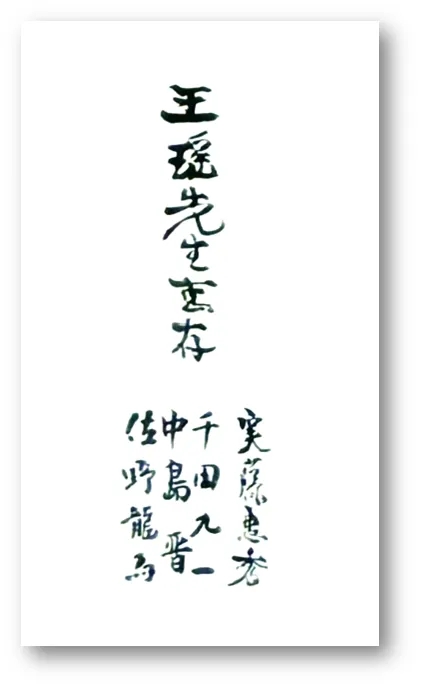 王瑶先生惠存
実藤恵秀
千田九一
中島晋
佐野龍馬